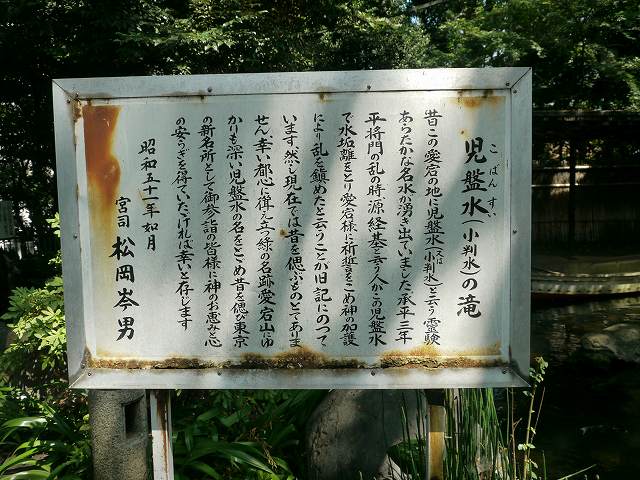 こばんすい
児盤水（小判水）の滝
昔この愛宕の地に児盤水（又は小判水）と云う霊験
あらたかな名水が湧き出ていました承平三年
平将門の乱の時源経基と云う人がこの児盤水
で水垢離をとり愛宕様に祈誓をこめ神の加護
により乱を鎮めたと云うことが旧記にのって
います。然し現在では昔を偲ぶものとてありま
せん、幸い都心に偉え立つ緑の名跡愛宕山にゆ
かりも深い児盤水の名をとどめ昔を偲び東京
の新名所として御参詣の皆様に神のお恵みと心
の安らぎを得ていたゞければ幸いと存じます
昭和五十一年如月
宮司 松岡岑男